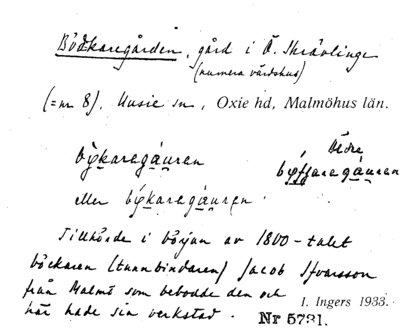 Bödkaregården, gård i Ö. Skrävlinge
(numera värdshus)
(= nr 8), Husie sn, Oxie hd, Malmöhus län.
bø̨karegáuren , äldre
bǿffaregáuren
eller bǿkaregáuren.
Tillhörde i början av 1800-talet
böckaren (tunnbindaren) Jacob Ifvarsson
från Malmö som bebodde den och
här hade sin verkstad.
I. Ingers 1933.
Nr 5731.